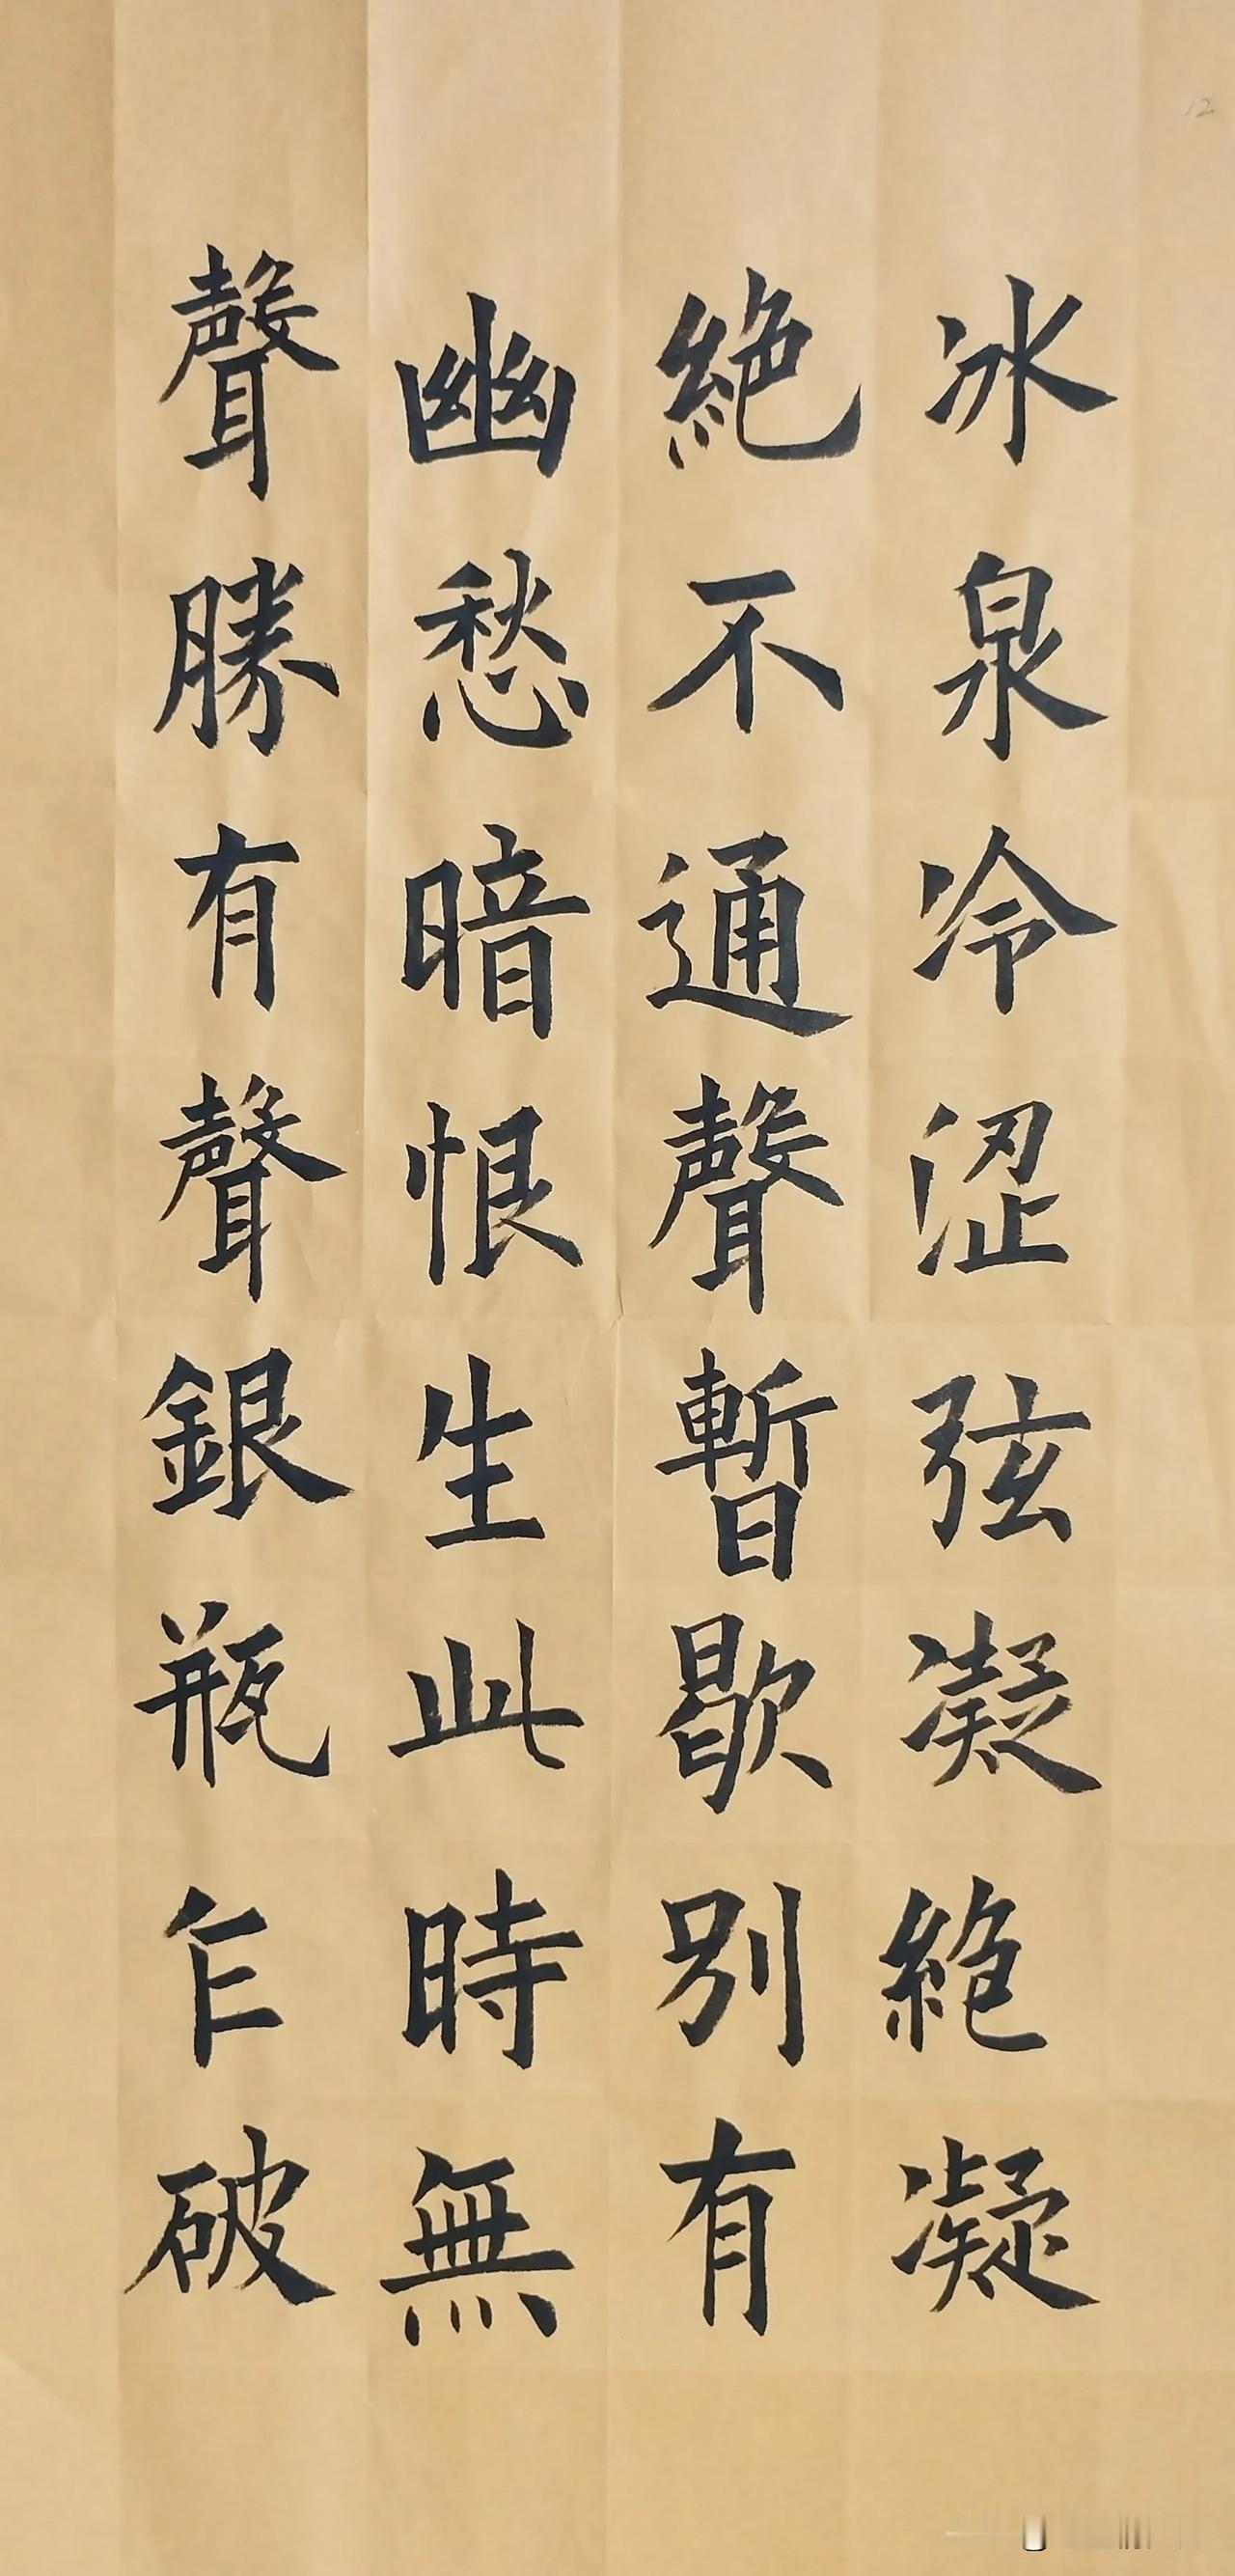 冰泉冷涩弦凝絶凝
絶不通聲暫歇別有
幽愁暗恨生此時無
聲勝有聲銀瓶乍破
12